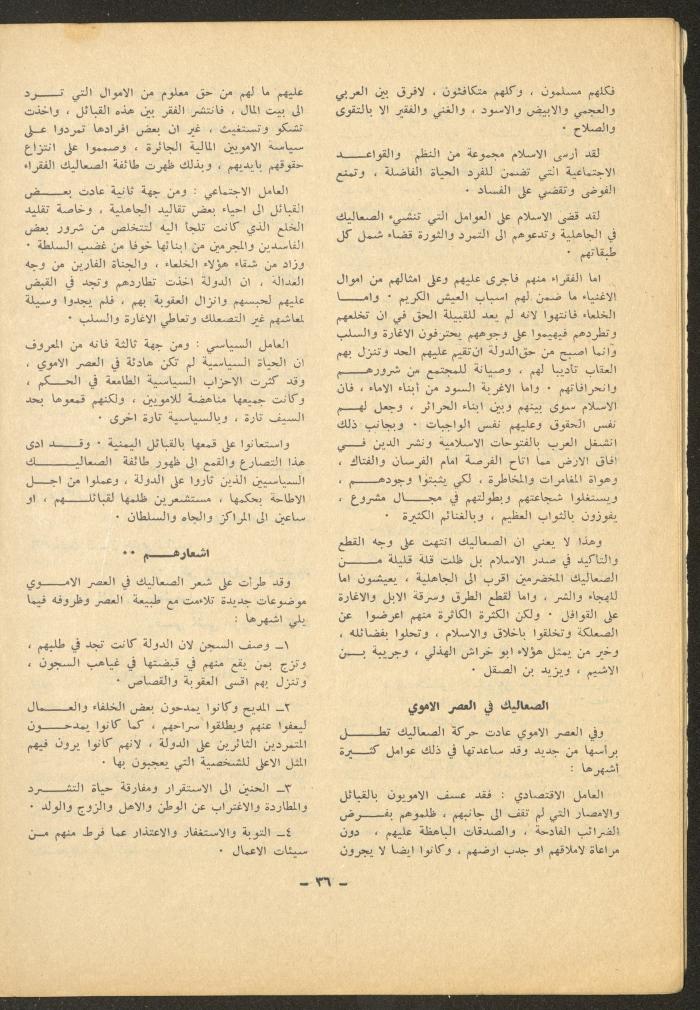 فكلهم مسلمون ، وكلهم متكافئون ، لافرق بين العربي
والعجمي والابيض والاسود ، والغني والفقير الا بالتقوى
والصلاح ٠
لقد أرسى الاسلام مجموعة من النظم والقواعد
الاجتماعية التي تضمن للفرد الحياة الفاضلة ، وتمنع
الفوضى وتقضي على الفساد ٠
لقد قضى الاسلام على العوامل التي تنشيء الصعاليك
في الجاهلية وتدعوهم الى التمرد والثورة قضاء شمل كل
طبقاتهم ٠
اما الفقراء منهم فاجرى عليهم وعلى امثالهم من اموال
الاغنياء ما ضمن لهم اسباب العيش الكريم ٠ واما
الخلعاء فانتهوا لانه لم يعد للقبيلة الحق في ان تخلعهم
وتطردهم فيهيموا على وجوههم يحترفون الاغارة والسلب
وانما اصبح من حق الدولة ان تقيم عليهم الحد وتنزل بهم
العقاب تأديبا لهم ، وصيانة للمجتمع من شرورهم
وانحرافاتهم ٠ واما الاغربة السود من أبناء الاماء ، فان
الاسلام سوى بينهم وبين ابناء الحرائر ، وجعل لهم
نفس الحقوق وعليهم نفس الواجبات ٠ وبجانب ذلك
انشغل العرب بالفتوحات الاسلامية ونشر الدين في
افاق الارض مما اتاح الفرصة امام الفرسان والفتاك ،
وهواة المغامرات والمخاطرة ، لكي يثبتوا وجودهم ،
ويستغلوا شجاعتهم وبطولتهم في مجال مشروع ،
يفوزون بالثواب العظيم ، وبالغنائم الكثيرة ٠
وهذا لا يعني ان الصعاليك انتهت على وجه القطع
والتأكيد في صدر الاسلام بل ظلت قلة قليلة من
الصعاليك المخضرمين اقرب الى الجاهلية ، يعيشون اما
للهجاء والشر ، واما لقطع الطرق وسرقة الابل والاغارة
على القوافل ٠ ولكن الكثرة الكاثرة منهم اعرضوا عن
الصعلكة وتخلقوا باخلاق والاسلام ، وتحلوا بفضائله ،
وخير من يمثل هؤلاء ابو خراش الهذلي ، وجريبة بن
الاشيم ، ويزيد بن الصقل ٠
الصعاليك في العصر الاموي
وفي العصر الاموي عادت حركة الصعاليك تطل
برأسها من جديد وقد ساعدتها في ذلك عوامل كثيرة
أشهرها :
العامل الاقتصادي : فقد عسف الامويون بالقبائل
والامصار التي لم تقف الى جانبهم ، ظلموهم بفرض
الضرائب الفادحة ، والصدقات الباهظة عليهم ، دون
مراعاة لاملاقهم او جدب ارضهم ، وكانوا ايضا لا يجرون
عليهم ما لهم من حق معلوم من الاموال التي ترد
الى بيت المال ، فانتشر الفقر بين هذه القبائل ، واخذت
تشكو وتستغيث ، غير ان بعض افرادها تمردوا على
سياسة الامويين المالية الجائرة ، وصمموا على انتزاع
حقوقهم بايديهم ، وبذلك ظهرت طائفة الصعاليك الفقراء
العامل الاجتماعي : ومن جهة ثانية عادت بعض
القبائل الى احياء بعض تقاليد الجاهلية ، وخاصة تقليد
الخلع الذي كانت تلجأ اليه لتتخلص من شرور بعض
الفاسدين والمجرمين من ابنائها خوفا من غضب السلطة ٠
وزاد من شقاء هؤلاء الخلعاء ، والجناة الفارين من وجه
العدالة ، ان الدولة اخذت تطاردهم وتجد في القبض
عليهم لحبسهم وانزال العقوبة بهم ، فلم يجدوا وسيلة
لمعاشهم غير التصعلك وتعاطي الاغارة والسلب ٠
العامل السياسي : ومن جهة ثالثة فانه من المعروف
ان الحياة السياسية لم تكن هادئة في العصر الاموي ،
وقد كثرت الاحزاب السياسية الطامعة في الحكم ،
وكانت جميعها مناهضة للامويين ، ولكنهم قمعوها بحد
السيف تارة ، وبالسياسية تارة اخرى ٠
واستعانوا على قمعها بالقبائل اليمنية ٠ وقد ادى
هذا التصارع والقمع الى ظهور طائفة الصعاليك
السياسيين الذين ثاروا على الدولة ، وعملوا من اجل
الاطاحة بحكمها ، مستشعرين ظلمها لقبائلهم ، او
ساعين الى المراكز والجاه والسلطان ٠
اشعارهم ٠٠
وقد طرأت على شعر الصعاليك في العصر الاموي
موضوعات جديدة تلاءمت مع طبيعة العصر وظروفه فيما
يلي اشهرها :
١ـ وصف السجن لان الدولة كانت تجد في طلبهم ،
وتزج بمن يقع منهم في قبضتها في غياهب السجون ،
وتنزل بهم اقسى العقوبة والقصاص ٠
٢ـ المديح وكانوا يمدحون بعض الخلفاء والعمال
ليعفوا عنهم ويطلقوا سراحهم ، كما كانوا يمدحون
المتمردين الثائرين على الدولة ، لانهم كانوا يرون فيهم
المثل الاعلى للشخصية التي يعجبون بها ٠
٣ـ الحنين الى الاستقرار ومفارقة حياة التشرد
والمطاردة والاغتراب عن الوطن والاهل والزوج والولد ٠
٤ـ التوبة والاستغفار والاعتذار عما فرط منهم من
سيئات الاعمال ٠
ـ ٣٦ ـ